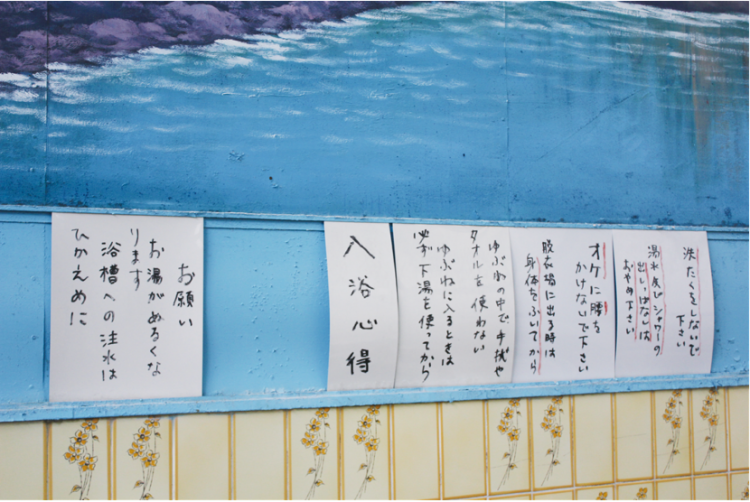 お願い
お湯がぬるくな
ります
浴槽への注水は
ひかえめに
入浴心得
ゆぶねの中で手拭や
タオルを使わない
ゆぶねに入るときは
必ず下湯を使ってから
オケに腰を
かけないで下さい
脱衣場に出る時は
身体をふいてから
洗たくをしないで
下さい
湯水及びシャワーの
出しっぱなしは
おやめ下さい